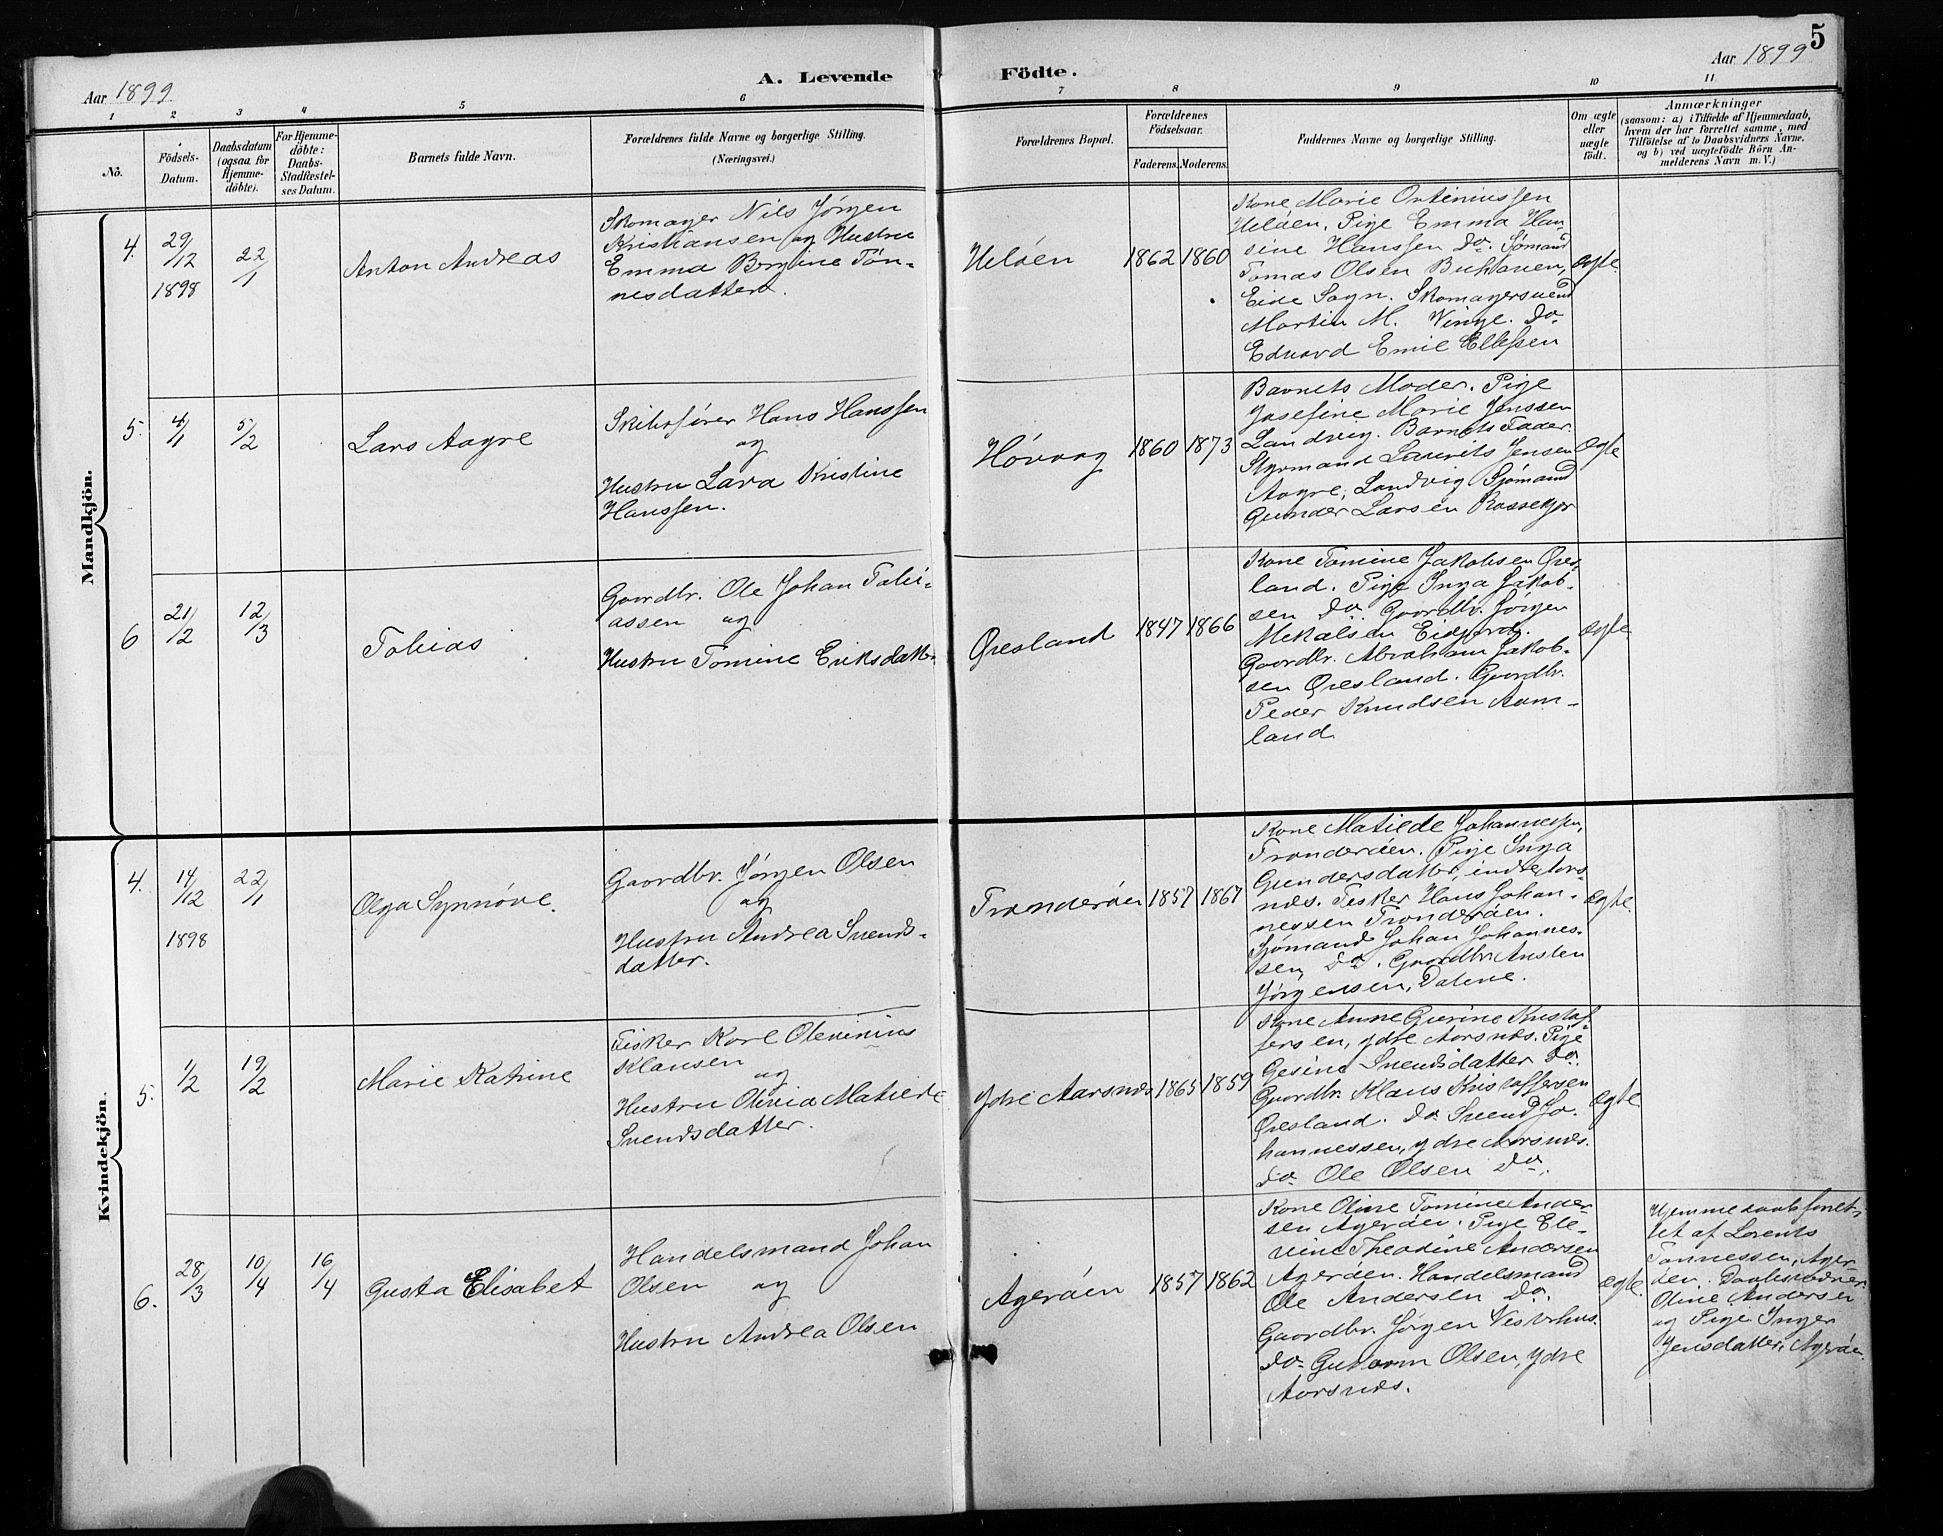 5
Aar 1899
A. Levende Födte.
Aar 1899
1 2 3 4 5 6 7 8 9 10 11
No.
Födsels-
Datum.
Daabsdatum
(ogsaa for
Hjemme-
döbte).
For Hjemme-
döbte:
Daabs-
Stadfæstel-
ses Datum.
Barnets fulde Navn.
Forældrenes fulde Navne og borgerlige Stilling.
(Næringsvei.)
Forældrenes Bopæl.
Forældrenes
Födselsaar.
Faderens. Moderens.
Faddernes Navne og borgerlige Stilling.
Om ægte
eller
uægte
födt.
Anmærkninger
(saasom: a) i Tilfælde af Hjemmedaab,
hvem der har forrettet samme, med
Tilföielse af to Daabsvidners Navne.
og b) ved uægtefödte Börn An-
melderens Navn m. V.)
Mandkjön.
4.
29/12
1898
22/1
Anton Andreas
Skomager Nils Jørgen
Kristiansen og Hustru
Emma Bergine Tøn-
nesdatter.
Heløen
1862 1860
Kone Marie Orteniussen
Heløen. Pige Emma Han-
sine Hanssen Do. Sømand
Tomas Olsen Buhaven,
Eide Sogn. Skomagersvend
Martin M. Vinge. Do
Eduard Emil Ellefsen
ægte.
5.
4/1
5/2
Lars Aagre
Skibsfører Hans Hanssen
og
Hustru Lava Kristine
Hanssen.
Høvaag
1860 1873
Barnets Moder. Pige
Josefine Marie Jenssen
Landvig. Barnets Fader.
Styrmand Laurits Jensen
Aagre, Landvig Sjømand
Gunder Larsen Rossekjær
ægte
6
21/2
12/3
Tobias
Gaardbr. Ole Johan Tobi-
assen og
Hustru Tomine Eriksdatter
Øresland
1847 1866
Kone Tomine Jakobsen Øres-
land. Pige Inga Jakob-
sen Do. Gaardbr. Jørgen
Mekalsen Eidjord.
Gaardbr. Abraham Jakob-
sen Øresland. Gaardbr.
Peder Knudsen Aam-
land.
ægte
Kvindekjön.
4.
14/12
1898
22/1
Olga Synnøve.
Gaardbr. Jørgen Olsen
og
Hustru Andrea Svends-
datter.
Trønderøen
1857 1867
Kone Matilde Johannessen,
Trønderøen. Pige Inga
Gundersdatter, indre Aars-
næs. Fisker Hans Johan-
nessen Trønderøen.
Sjømand Johan Johannes-
sen, Do. Gaardbr. Ansten
Jørgensen, Dalene.
ægte.
5.
1/2
19/2
Marie Katrine
Fisker Karl Olevinius
Klausen
og
Hustru Olivia Matilde
Svendsdatter.
Ydre Aarsnæs
1865 1859
Kone Anne Gurine Kristof-
fersen, ydre Aarsnæs. Pige
Gesine Svendsdatter Do.
Gaardbr. Klaus Kristoffersen
Øresland. Do Svend Jo-
hannessen, ydre Aarsnæs.
Do Ole Olsen Do.
ægte
6.
28/3
10/4
16/4
Gusta Elisabet
Handelsmand Johan
Olsen og
Hustru Andrea Olsen
Agerøen
1857 1862
Kone Oline Tomine Ander-
sen Agerøen. Pige Ele-
vine Theodine Andersen
Agerøen. Handelsmand
Ole Andersen Do.
Gaardbr. Jørgen Vestrhus.
Do Guttorm Olsen, ydre
Aarsnæs.
ægte.
Hjemmedaab forret-
tet af Lorents
Tønnessen, Ager-
øen. Daabsvidner
Oline Andersen
og Pige Inger
Jensdatter, Agerøen